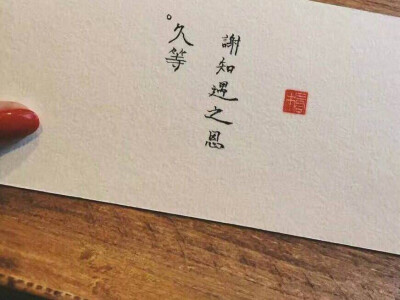 謝知遇之恩
久等。